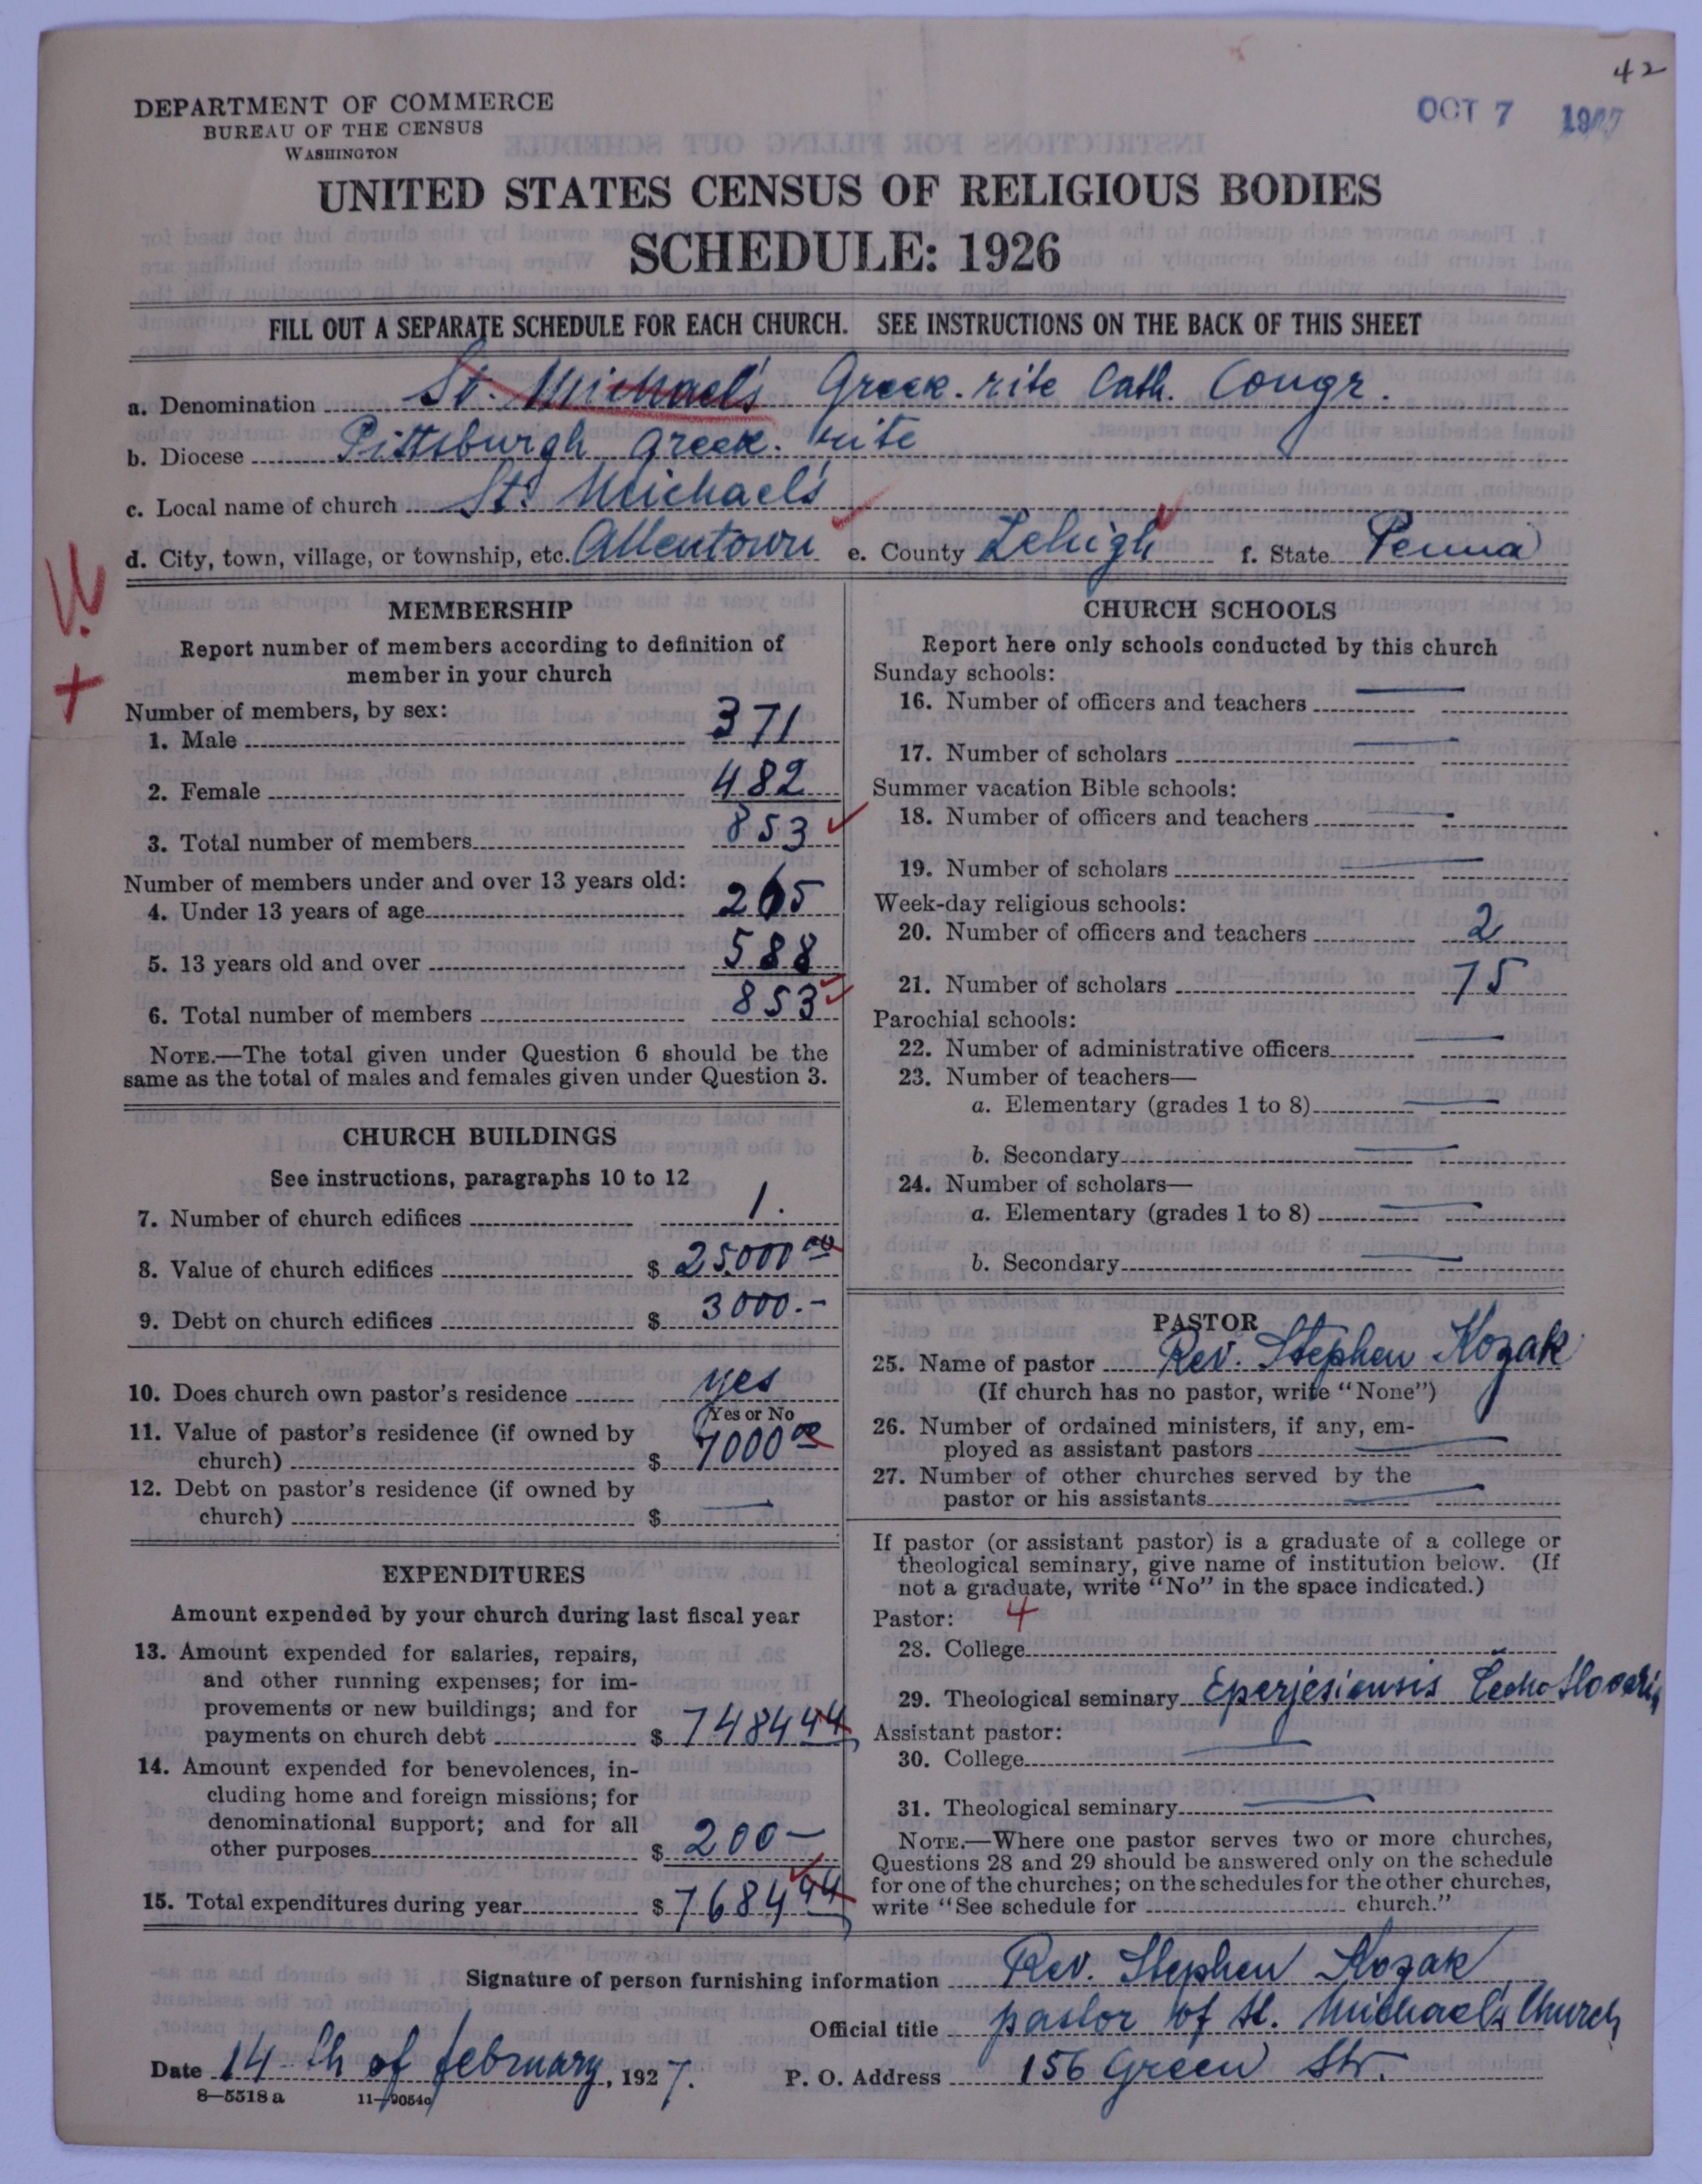 42
OCT 7 1927
DEPARTMENT OF COMMERCE
BUREAU OF THE CENSUS
WASHINGTON
UNITED STATES CENSUS OF RELIGIOUS BODIES
SCHEDULE: 1926
FILL OUT A SEPARATE SCHEDULE FOR EACH CHURCH. SEE INSTRUCTIONS ON THE BACK OF THIS SHEET
a. Denomination St. Michael's Greek-rite Cath. Congr.
b. Diocese Pittsburgh Greek-rite
c. Local name of church St. Michael's
d. City, town, village, or township, etc. Allentown e. County Lehigh f. State Penna
MEMBERSHIP
Report number of members according to definition of
member in your church
Number of members, by sex:
1. Male 371
2. Female 482
3. Total number of members 853
Number of members under and over 13 years old:
4. Under 13 years of age 265
5. 13 years old and over 588
6. Total number of members 853
NOTE.—The total given under Question 6 should be the
same as the total of males and females given under Question 3.
CHURCH BUILDINGS
See instructions, paragraphs 10 to 12
7. Number of church edifices 1.
8. Value of church edifices $ 25,000 00
9. Debt on church edifices $ 3000.-
10. Does church own pastor's residence yes
Yes or No
11. Value of pastor's residence (if owned by
church) $ 7000 00
12. Debt on pastor's residence (if owned by
church) $ —
EXPENDITURES
Amount expended by your church during last fiscal year
13. Amount expended for salaries, repairs,
and other running expenses; for im-
provements or new buildings; and for
payments on church debt $ 7484 44
14. Amount expended for benevolences, in-
cluding home and foreign missions; for
denominational support; and for all
other purposes $ 200-
15. Total expenditures during year $ 7684 44
CHURCH SCHOOLS
Report here only schools conducted by this church
Sunday schools:
16. Number of officers and teachers —
17. Number of scholars —
Summer vacation Bible schools:
18. Number of officers and teachers —
19. Number of scholars —
Week-day religious schools:
20. Number of officers and teachers 2
21. Number of scholars 75
Parochial schools:
22. Number of administrative officers —
23. Number of teachers—
a. Elementary (grades 1 to 8) —
b. Secondary —
24. Number of scholars—
a. Elementary (grades 1 to 8) —
b. Secondary —
PASTOR
25. Name of pastor Rev. Stephen Kozak
(If church has no pastor, write "None")
26. Number of ordained ministers, if any, em-
ployed as assistant pastors —
27. Number of other churches served by the
pastor or his assistants —
If pastor (or assistant pastor) is a graduate of a college or
theological seminary, give name of institution below. (If
not a graduate, write "No" in the space indicated.)
Pastor: 4
28. College
29. Theological seminary Eperjesiensis
Assistant pastor:
30. College —
31. Theological seminary —
NOTE.—Where one pastor serves two or more churches,
Questions 28 and 29 should be answered only on the schedule
for one of the churches; on the schedules for the other churches,
write "See schedule for church."
Signature of person furnishing information Rev. Stephen Kozak
Official title pastor of St. Michael's Church
Date 14-th of february, 1927. P. O. Address 156 Green Str.
8—5518 a 11—9054c